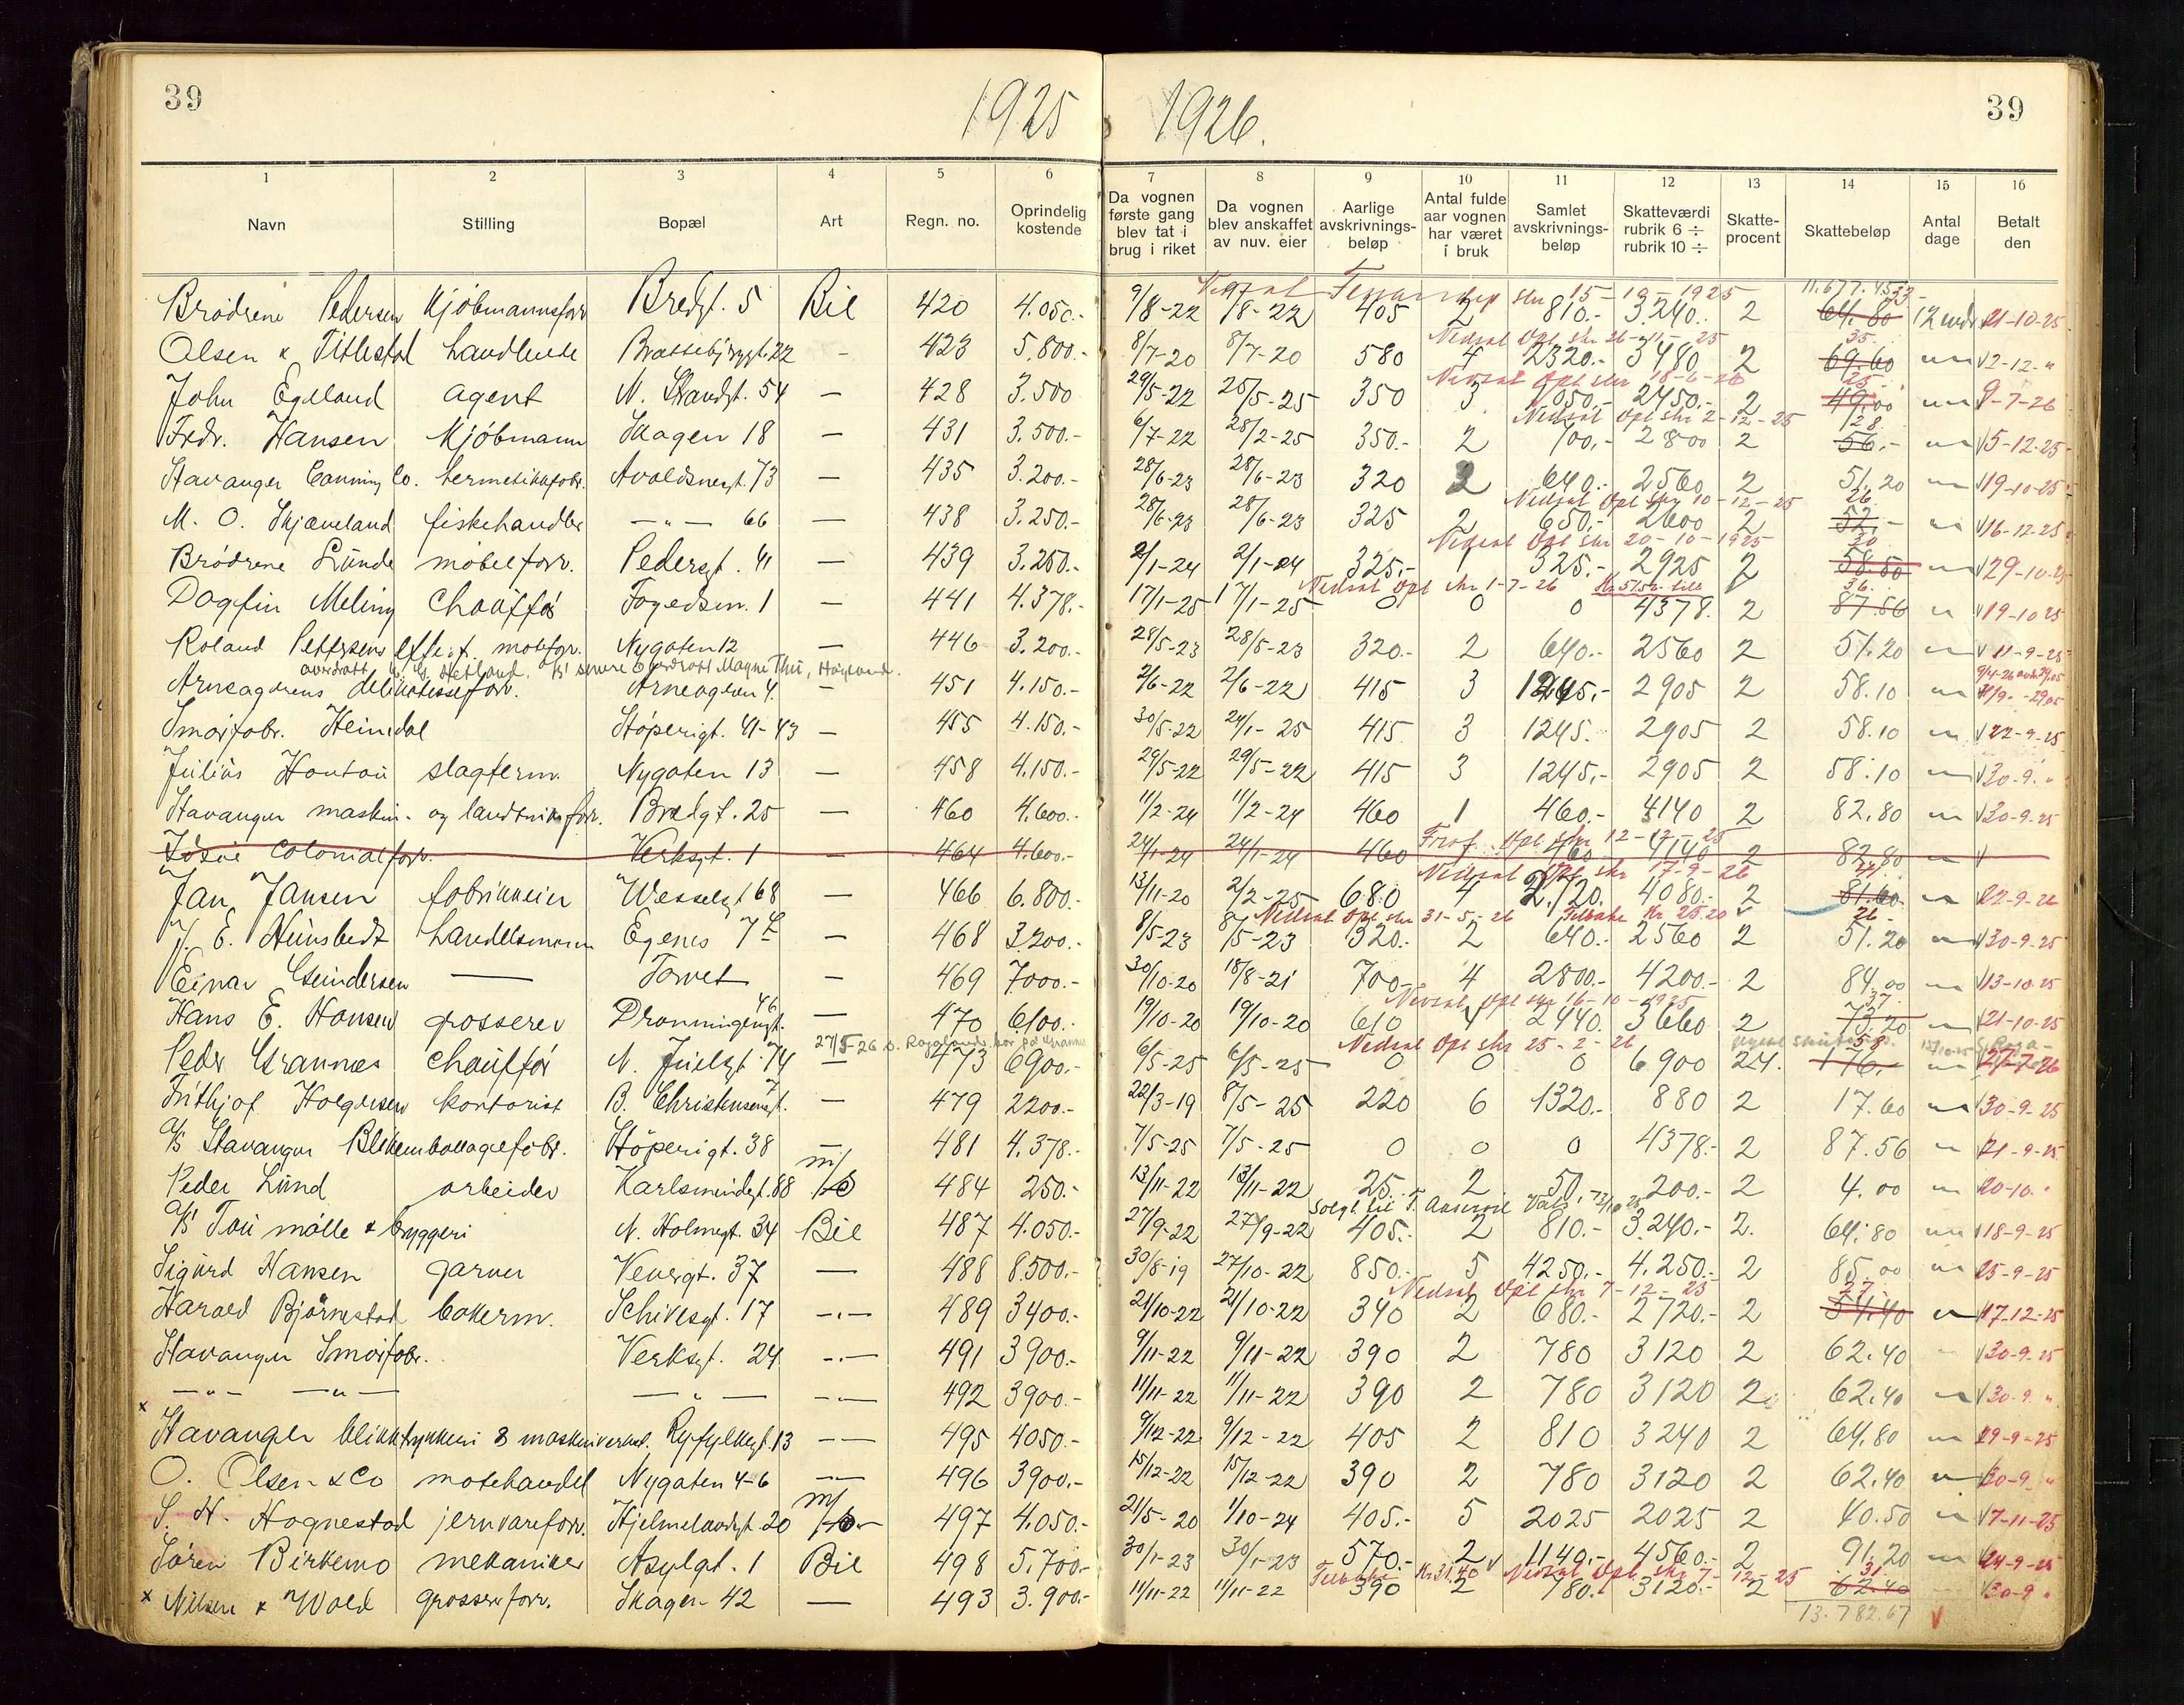 39
1925
1926.
39
1 2 3 4 5 6 7 8 9 10 11 12 13 14 15 16
Navn Stilling Bopæl Art Regn. no. Oprindelig kostende Da vognen første gang blev tat i brug i riket Da vognen blev anskaffet av nuv. eier Aarlige avskrivnings-beløp Antal fulde aar vognen har været i bruk Samlet avskrivnings-beløp Skatteværdi rubrik 6 ÷ rubrik 10 ÷ Skatte-procent Skattebeløp Antal dage Betalt den
11.677.45
Brødrene Pedersen Kjöbmannsforr Bredgt. 5 Bil 420 4.050.- 9/8-22 9/8-22 405 2 810.- 3.240.- 2 64.80 12 mdr 21-10-25
Nedsat Opl skr 26-11-25 35.
Olsen & Titlestad handlende 22 - 423 5.800.- 8/7-20 8/7-20 580 4 2320.- 3480 2 69.60 2-12-"
Nedsat Opl skr 18-6-26 25.
John Egeland agent N. Strandgt. 54 — 428 3.500 29/5-22 25/5-25 350 3 1050.- 2450.- 2 49.00 9-7-26
Nedsat Opl skr 2-12-25 128.
Fredr. Hansen Kjöbmann Skagen 18 — 431 3.500.- 6/7-22 28/2-25 350.- 2 700.- 2800 2 56.- 5-12-25
Stavanger Canning Co. hermetikkfabr. Avaldsnesgt. 73 — 435 3.200.- 28/6-23 28/6-23 320 2 640.- 2560 2 51.20 19-10-25
Nedsat Opl skr 10-12-25 26
M. O. Skjæveland fiskehandler — " — 66 — 438 3.250.- 28/6-23 28/6-23 325 2 650.- 2600 2 52.- 16-12-25
Nedsat Opl skr 20-10-1925 30
Brödrene Lunde möbelforr. Pedersgt. 41 — 439 3.250.- 2/1-24 2/1-24 325.- 1 325.- 2925 2 58.50 29-10-25
Nedsat Opl skr 1-7-26 Kr 51.56 36.
Dagfin Meling Chaufför Fogedsm. 1 — 441 4.378.- 17/1-25 17/1-25 0 0 0 4378. 2 87.56 19-10-25
Roland Pettersens motefor. Nygaten 12 — 446 3.200.- 28/5-23 28/5-23 320.- 2 640.- 2560 2 51.20 11-9-25
Arneagerens delikatesseforr. Arneageren 4. — 451 4.150.- 2/6-22 2/6-22 415 3 1245.- 2905 2 58.10
Smörfabr. Heimdal Støperigt. 41-43 — 455 4.150.- 30/5-22 24/1-25 415 3 1245. 2905 2 58.10 22-9-25
Julius Hontou slagterm. Nygaten 13 — 458 4.150.- 29/5-22 29/5-22 415 3 1245.- 2905 2 58.10 30-9-"
Stavanger maskin- og landbruksforr. Bredgt. 25 — 460 4.600.- 11/2-24 11/2-24 460 1 460.- 4140 2 82.80 30-9-25
Opl skr 12-12-25
colonialforr. Verksgt. 1 — 464 4.600.- 24/1-24 24/1-24 460 460 4140 2 82.80
Nedsat Opl skr 17-9-26
Jan Jansen fabrikkeier Wesselsgt 68 — 466 6.800.- 13/11-20 2/2-25 680 4 2.720. 4080.- 2 81.60 22-9-26
Nedsat Opl skr 31-5-26 Tilbake Kr 25.20 26-
J. E. Heimstedt handelsmann Egenes 7 — 468 3.200.- 8/5-23 8/5-23 320.- 2 640.- 2560 2 51.20 30-9-25
Einar Gundersen — Torvet — 469 7000.- 30/10-20 18/8-21 700.- 4 2800.- 4200.- 2 84.00 13-10-25
Nedsat Opl skr 16-10-1925 37.
Hans E. Hansen grosserer Dronningensgt. 46 — 470 6100.- 19/10-20 19/10-20 610 4 2440. 3660 2 73.20 21-10-25
Nedsat Opl skr 25-2-26 58
Peder Grannes chaufför N. Juelsgt. 74 — 473 6900.- 6/5-25 6/5-25 0 0 0 6900 2 176.- 27-7-26
Frithjof Holgersen kontorist B. Christensensgt. 7 — 479 2200.- 22/3-19 8/5-25 220 6 1320.- 880 2 17.60 30-9-25
A/S Stavanger Blikemballagefabr. Stöperigt. 38 — 481 4.378.- 7/5-25 7/5-25 0 0 0 4378.- 2 87.56 21-9-25
Peder Lund arbeider Karlsmindegt. 88 m/ 484 250.- 13/11-22 13/11-22 25.- 2 50 200.- 2 4.00 20-10-"
Solgt til
A/S Tou mölle & bryggeri N. Holmegt. 34 Bil 487 4.050.- 27/9-22 27/9-22 405.- 2 810.- 3.240.- 2. 64.80 18-9-25
Sigurd Hansen garver Vevergt. 37 — 488 8.500.- 30/8-19 27/10-22 850.- 5 4250.- 4.250.- 2 85.00 25-9-25
Nedsat Opl skr 7-12-25 27.
Harald Björnestad bakerm. Schivesgt. 17 -"- 489 3400.- 21/10-22 21/10-22 340 2 680.- 2720.- 2 54.40 17-12-25
Stavanger Smörfabr. Verksgt. 24 -"- 491 3900.- 9/11-22 9/11-22 390 2 780 3120 2 62.40 30-9-25
— " — — " — — " — -"- 492 3900.- 11/11-22 11/11-22 390 2 780 3120 2 62.40 30-9-"
x
Stavanger blikktrykkeri & maskinverkst. Ryfylkegt. 13 — 495 4050.- 9/12-22 9/12-22 405 2 810 3240 2 64.80 29-9-25
O. Olsen & Co motehandel Nygaten 4-6 — 496 3900.- 15/12-22 15/12-22 390 2 780 3120 2 62.40 30-9-"
S. H. Hognestad jernvareforr. Hjelmelandsgt. 20 m/ 497 4.050.- 21/5-20 1/10-24 405.- 5 2025 2025 2 40.50 7-11-25
Sören Birkemo mekaniker Asylgt. 1 Bil 498 5.700.- 30/1-23 30/1-23 570.- 2 1140.- 4560.- 2 91.20 24-9-25
Tilbake Kr 31.40 Nedsat Opl skr 7-12-25 31.
x Nilsen & Wold grossererforr. Skagen 42 — 493 3.900.- 11/11-22 11/11-22 390 2 780.- 3120.- 2 62.40 30-9 "
13.782.67